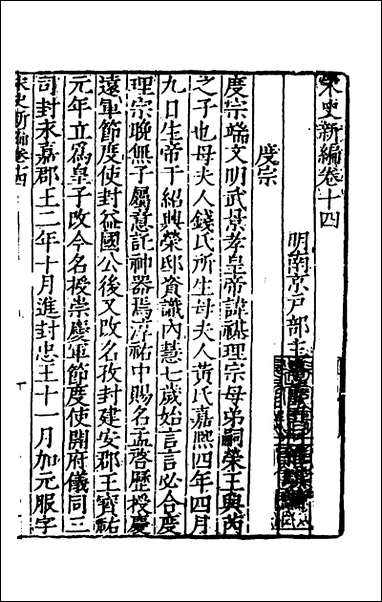 宋史新編卷十四
明南京戶部主
度宗
度宗端文明武景孝皇帝諱禥理宗母弟嗣榮王與芮
之子也母夫人錢氏所生母夫人黃氏嘉熙四年四月
九日生帝于紹興榮邸資識內慧七歲始言言必合度
理宗晚無子屬意託神器焉淳祐中賜名孟啓歷授慶
遠軍節度使封益國公後又改名孜封建安郡王寳祐
元年立爲皇子改今名授崇慶軍節度使開府儀同三
司封永嘉郡王二年十月進封忠王十一月加元服字
宋史新編卷十四